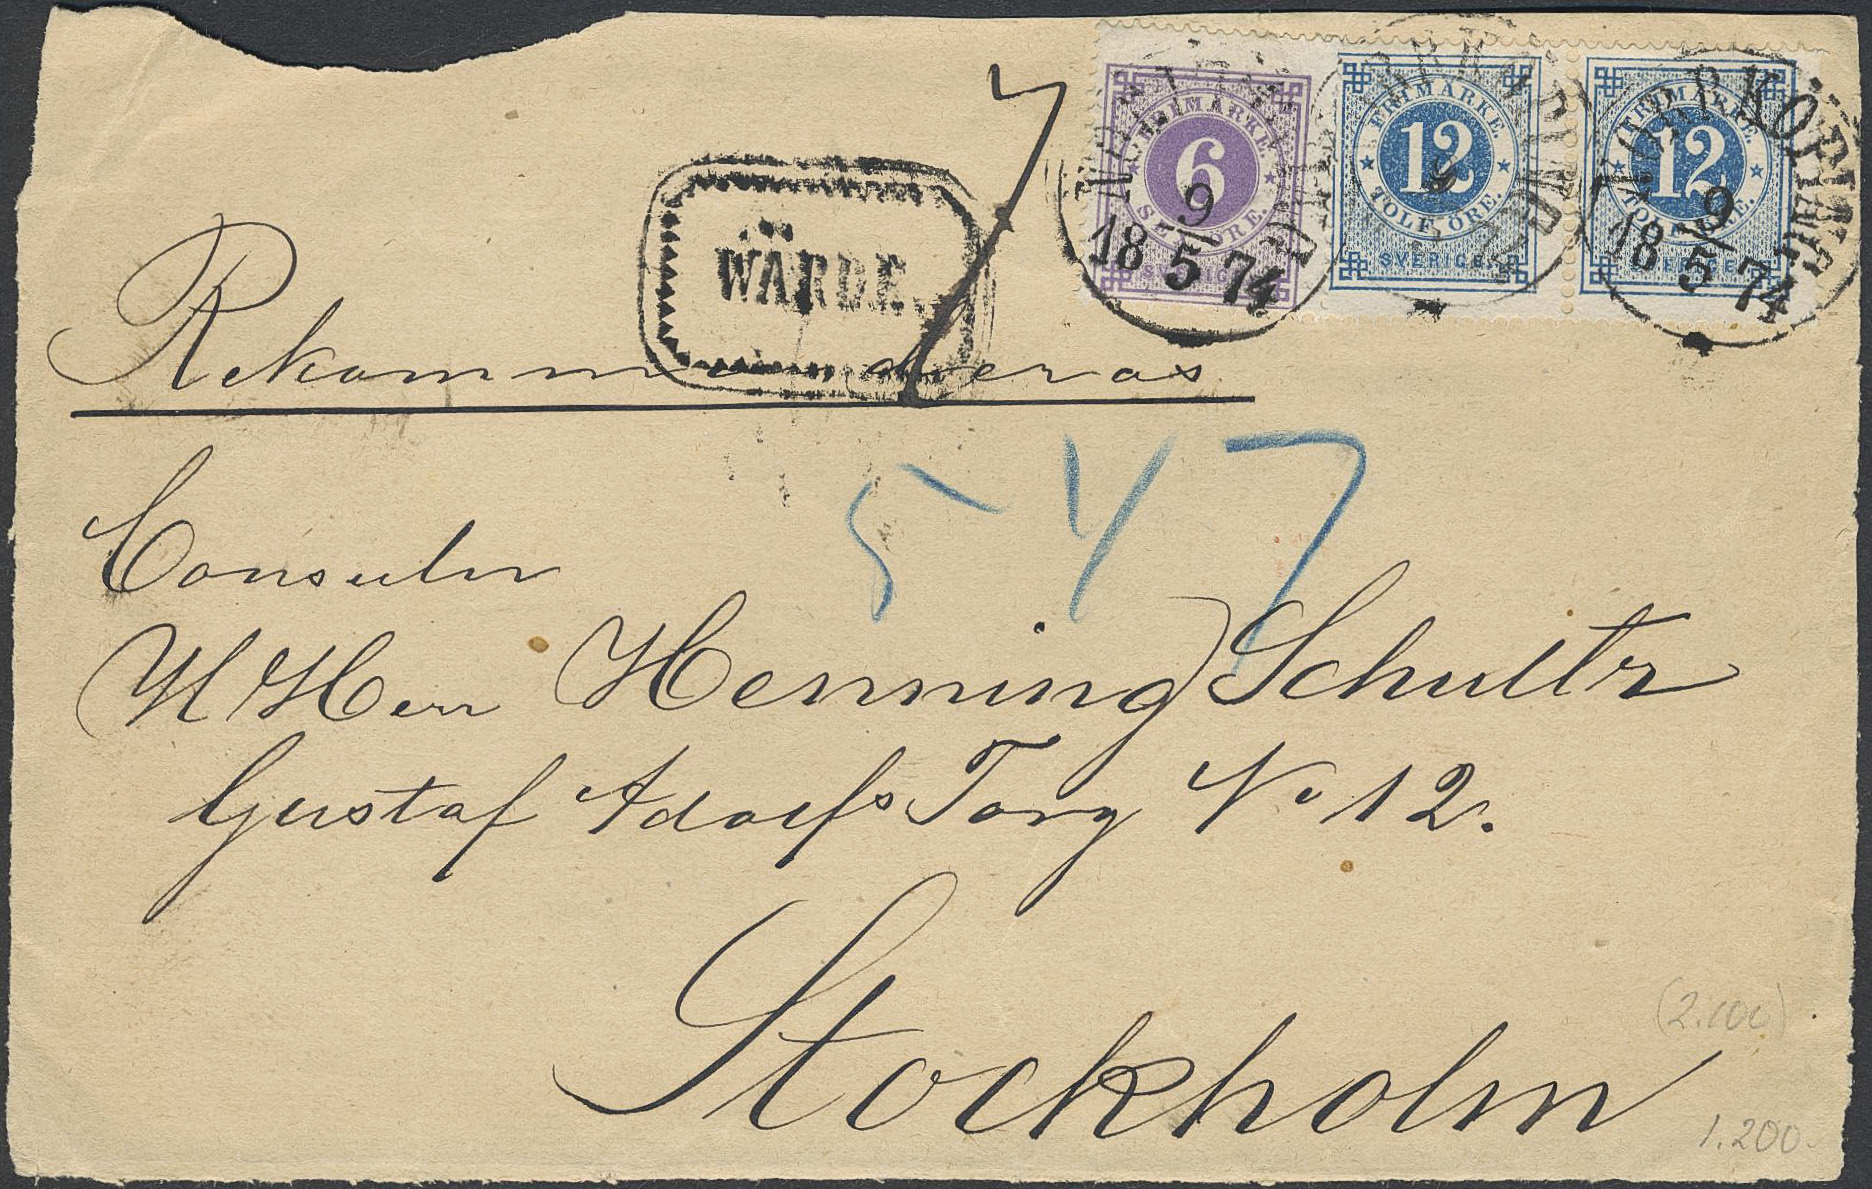 FRIMÄRKE.
6
SEX ÖRE.
SVERIGE
FRIMÄRKE.
12
TOLF ÖRE.
SVERIGE
FRIMÄRKE.
12
TOLF ÖRE.
SVERIGE
NORRKÖPING
9
18 5 74
NORRKÖPING
9
NORRKÖPING
9
18 5 74
WÄRDE.
Rekommenderas
547
Consuln
H Herr Henning Schultz
Gustaf Adolfs Torg No 12.
Stockholm
(2.100)
1.200.